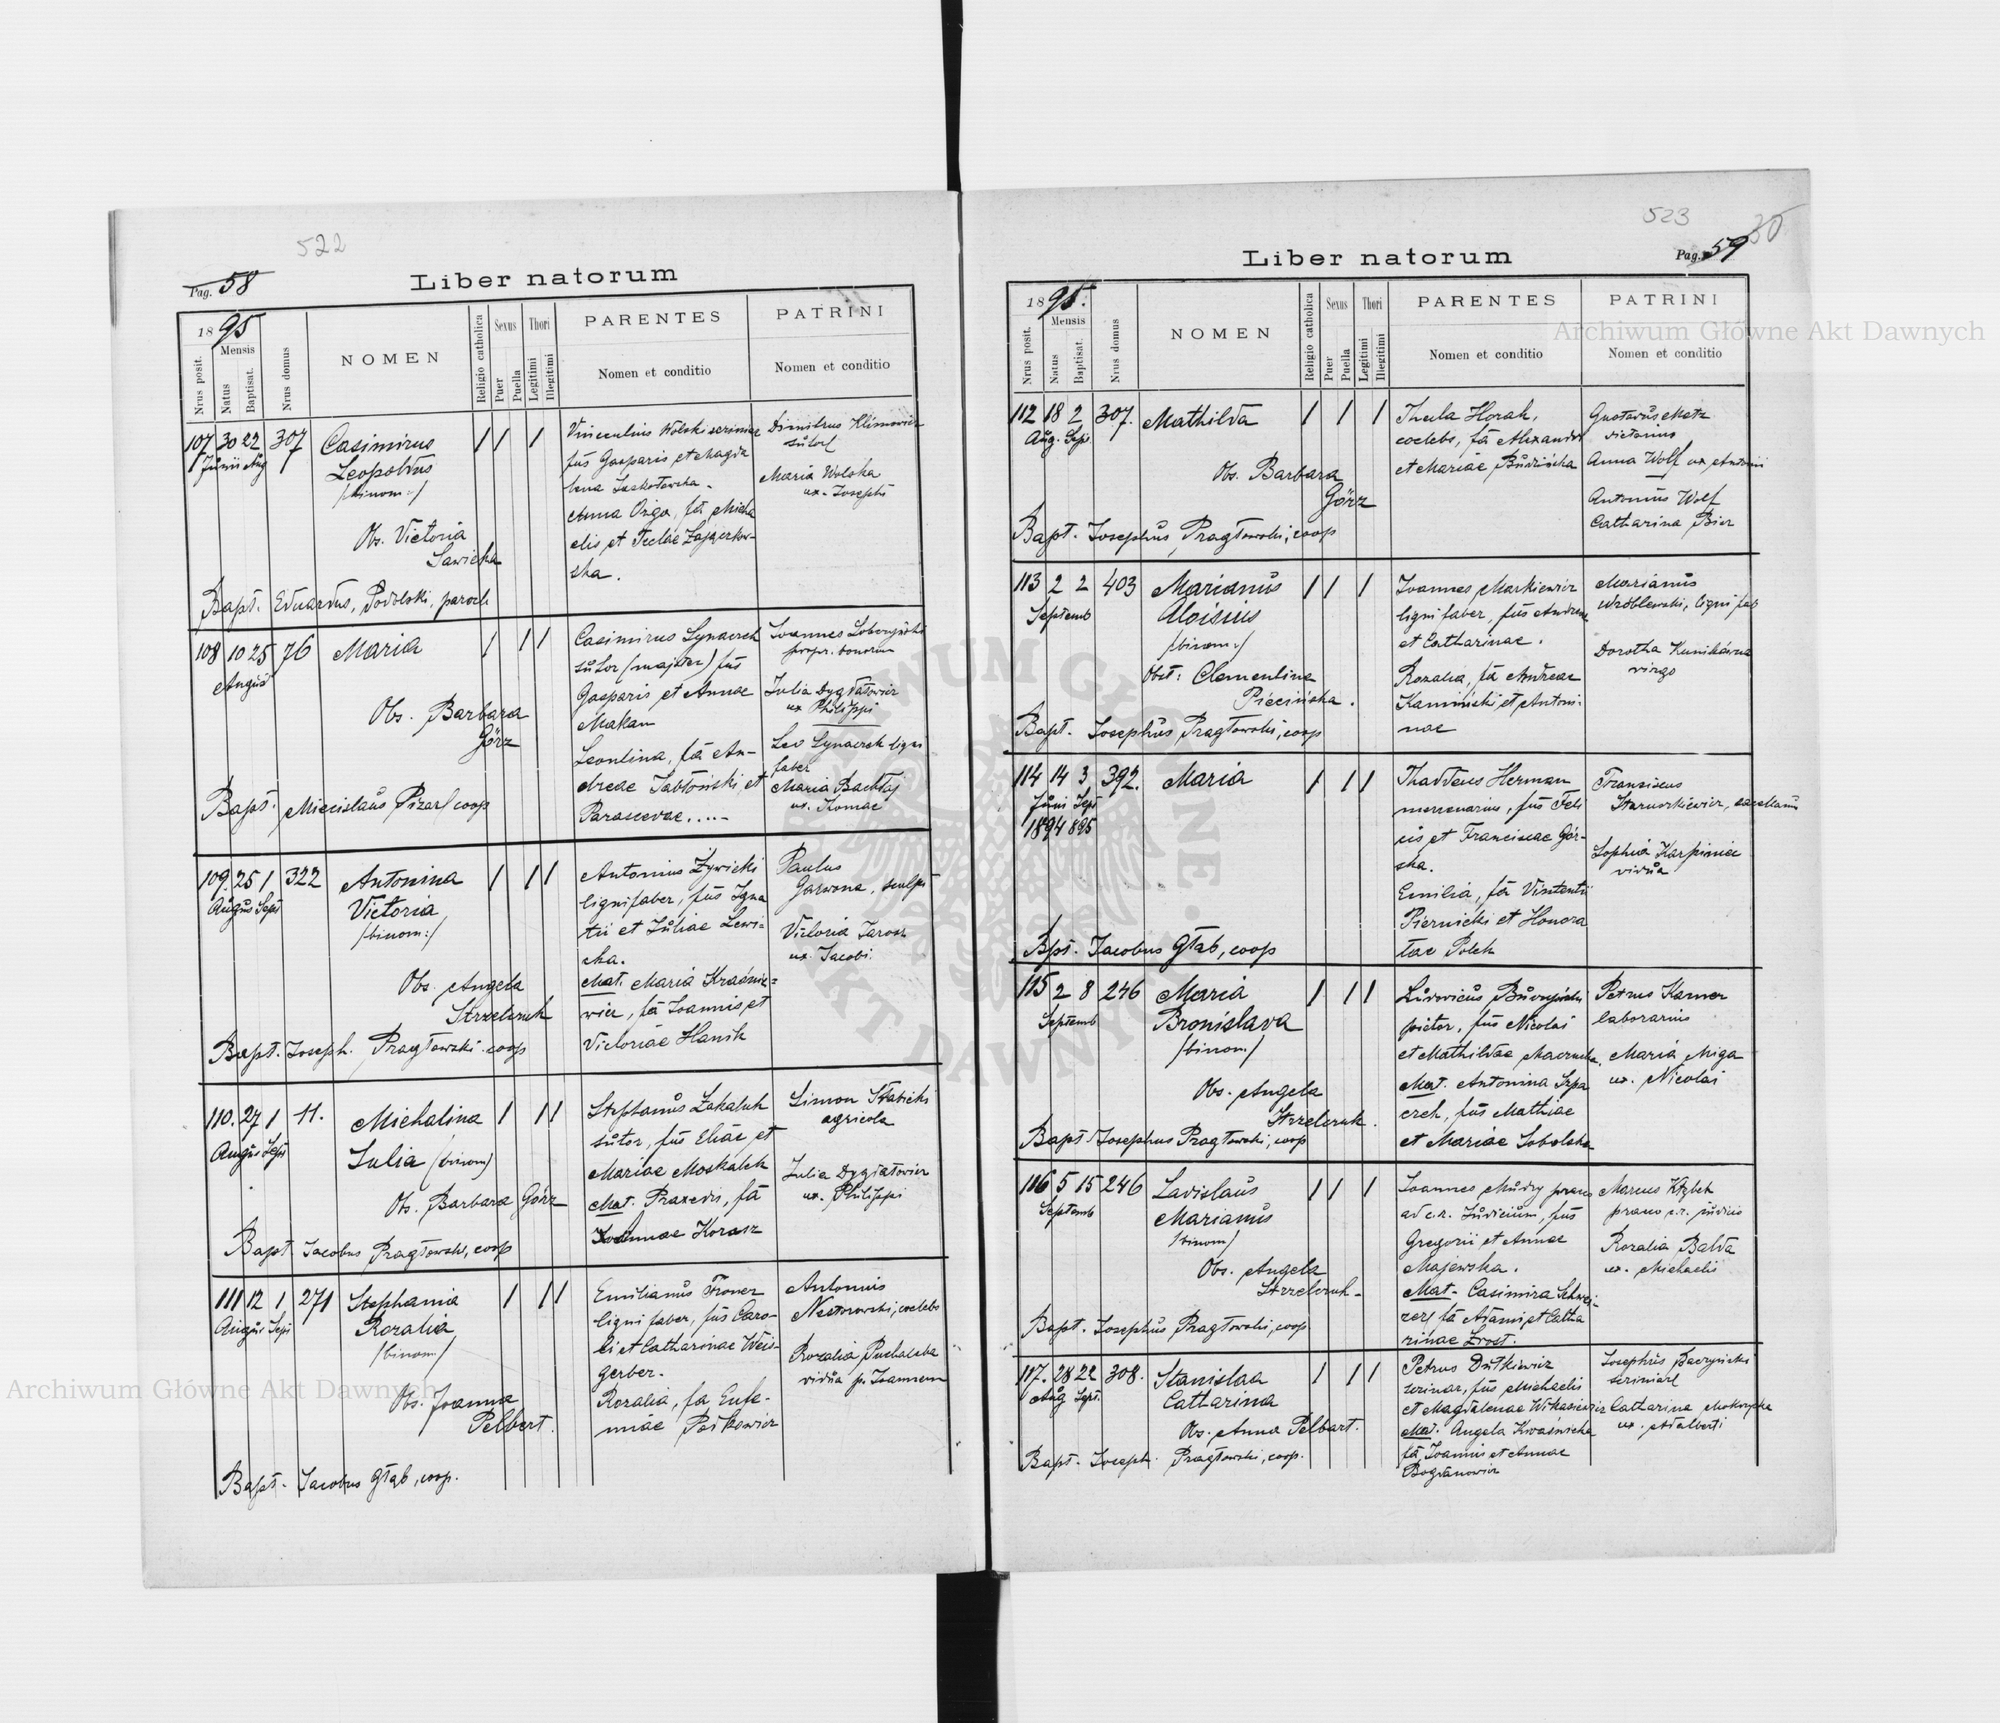 522
Pag. 58
Liber natorum
1895
Nrus posit.
Mensis
Natus
Baptisat.
Nrus domus
NOMEN
Religio catholica
Sexus
Puer
Puella
Thori
Legitimi
Illegitimi
PARENTES
Nomen et conditio
PATRINI
Nomen et conditio
107 30 22 307 Casimirus
Junii Aug Leopoldus
/binom:/
Obs. Victoria
Sawicka
Bapt. Eduardus, Podolski, paroch
Vincentius Wolski
fus Gasparis et Magda
lena
Anna fa Micha
elis et Teclae Zajączkow-
ska.
Dimitrus Klimowicz
sutor
Maria Wolska
ux. Josephi
108 10 25 76 Maria
August
Obs. Barbara
Görz
Bapt. Miecislaus Pizar coop
Casimirus Synaerek
sutor (major) fus
Gasparis et Annae
Makan
Leontina, fa An-
dreae Jabłoński et
Parascevae.
Joannes
propr. bonorum
Julia Dygdałowicz
ux Philippi
Leo Synaerek ligni
faber
Maria Bachtaj
ux. Thomae
109. 25 1 322 Antonina
August Sept Victoria
/binom:/
Obs. Angela
Strzelczuk
Bapt. Joseph. Pragłowski coop
Antonius Żywicki
ligni faber, fus Igna
tii et Juliae Lewi-
cka.
Mat. Maria Kraśnie-
wicz, fa Joannis et
Victoriae Hanik
Paulus
Garwona, sculpt
Victoria Jarosz
ux. Jacobi
110. 27 1 11. Michalina
August Sept Julia (binom)
Obs. Barbara Görz
Bapt Jacobus Pragłowski, coop
Stephanus Zakaluk
sutor, fus Eliae et
Mariae Moskaluk
Mat. Praxedis, fa
Joannae Korasz
Simon Słabicki
agricola
Julia Dygdałowicz
ux. Philippi
111 12 1 271 Stephania
August Sept Rozalia
/binom/
Obs. Joanna
Pelbert.
Bapt. Jacobus Głąb, coop.
Emilianus Froner
ligni faber, fus Caro-
li et Catharinae Weis-
gerber.
Rozalia, fa Eufe-
miae Paśkewicz
Antonius
Nestorowski, coelebs
Rozalia Puchalska
vidua p. Joannem
523
30
Liber natorum
Pag. 59
1895.
Nrus posit.
Mensis
Natus
Baptisat.
Nrus domus
NOMEN
Religio catholica
Sexus
Puer
Puella
Thori
Legitimi
Illegitimi
PARENTES
Nomen et conditio
PATRINI
Nomen et conditio
112 18 2 307. Mathilda
Aug. Sept.
Obs. Barbara
Görz
Bapt. Josephus Pragłowski, coop
Thecla Horak,
coelebs, fa Alexandri
et Mariae Budzińska
Gustavus Matz
victorius
Anna Wolf ux Antonii
Antonius Wolf
Catharina Bier
113 2 2 403 Marianus
Septemb Aloisius
/binom:/
Obst: Clementina
Piecińska.
Bapt. Josephus Pragłowski, coop
Joannes Markiewicz
ligni faber, fus Andreae
et Catharinae.
Rozalia, fa Andreae
Kamiński, et Antoni-
nae
Marianus
Wróblewski, ligni fab
Dorotha
virgo
114 14 3 392. Maria
Juni Sept
1894 895
Bpt. Jacobus Głąb, coop
Thaddeus Herman
mercenarius, fus Feli
cis et Franciscae Gór-
ska.
Emilia, fa Vincentii
Piernicki et Honora
tae Polek
Franciscus
Starworkiewicz,
Sophia Karpiniec
vidua
115 2 8 246 Maria
Septemb Bronislava
/binom/
Obs. Angela
Strzelczuk.
Bapt Josephus Pragłowski, coop
Ludovicus
pictor, fus Nicolai
et Mathildae
Mat. Antonina Szpa
czek, fus Mathiae
et Mariae Sobolska
Petrus Karner
laborarius
Maria Miga
ux. Nicolai
116 5 15 246 Ladislaus
Septemb Marianus
/binom/
Obs. Angela
Strzelczuk-
Bapt. Josephus Pragłowski, coop
Joannes Mudry praeco
ad c.r. Judicium, fus
Gregorii et Annae
Majewska.
Mat- Casimira Schwei-
zer, fa Adami, et Catha
rinae Zrost.
Marcus
praeco c.r. judicii
Rozalia Balda
ux. Michaelis
117. 28 22 308. Stanislaa
Aug Sept. Catharina
Obs. Anna Pelbart.
Bapt. Joseph. Pragłowski, coop.
Petrus Dutkiewicz
scriniar, fus Michaelis
et Magdalenae
Mat. Angela Kwaśnicka
fa, Joannis et Annae
Bogdanowicz
Josephus Baczyński
scriniarl
Catharina Mokrzycka
ux. Adalberti
Archiwum Główne Akt Dawnych
Archiwum Główne Akt Dawnych
ARCHIWUM GŁÓWNE AKT DAWNYCH